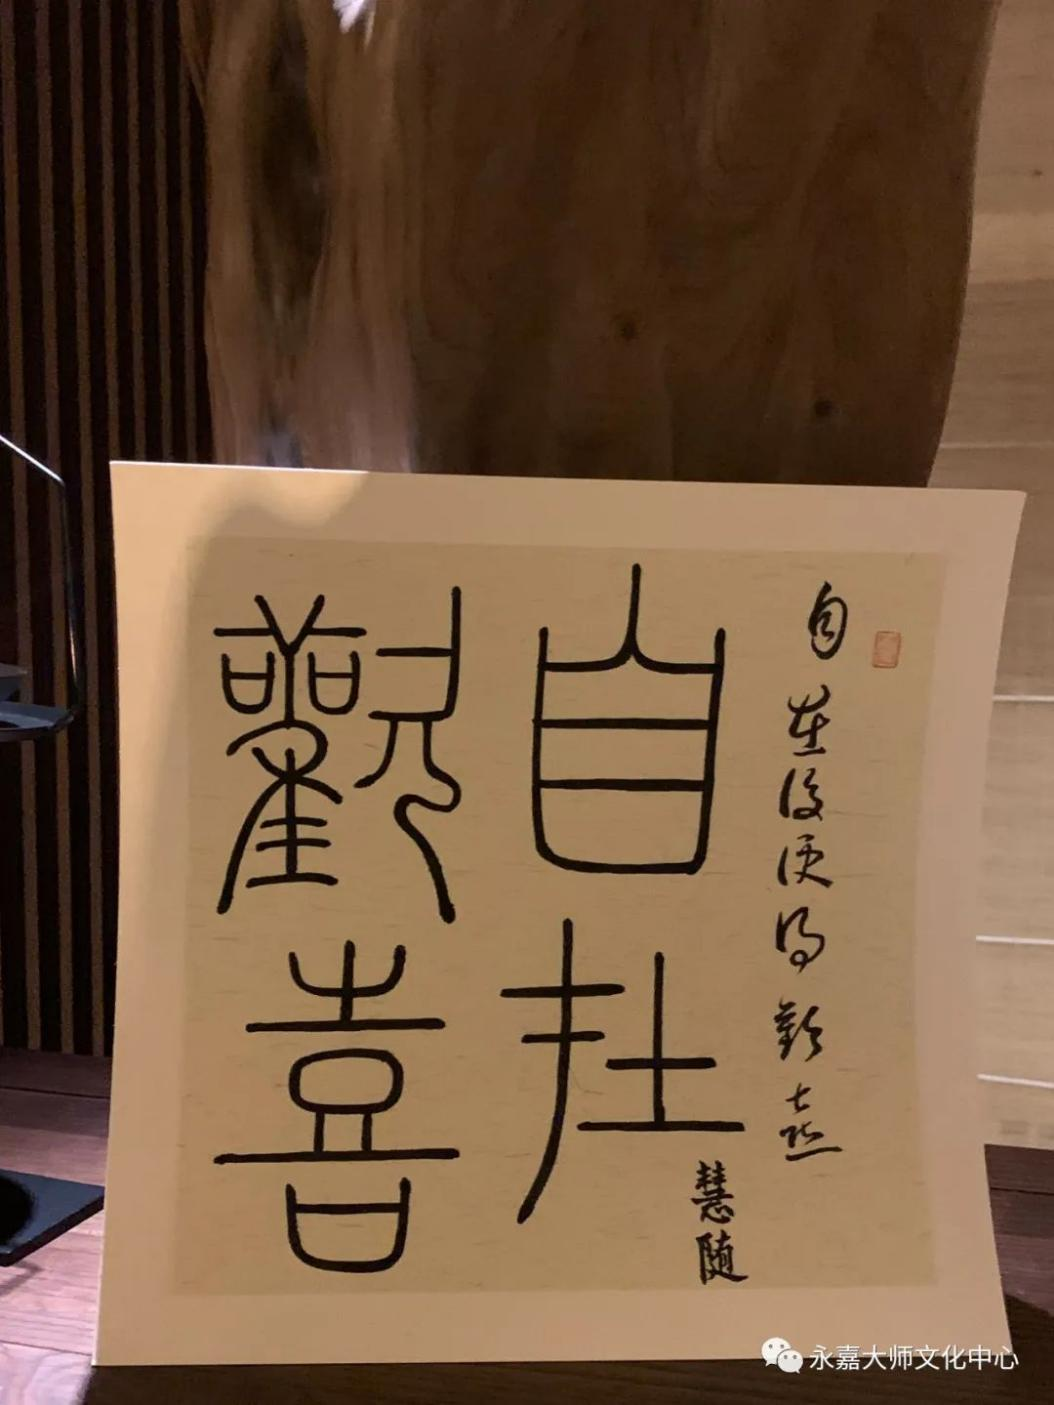 自在
歡喜
自在後便得歡喜
慧随
永嘉大师文化中心